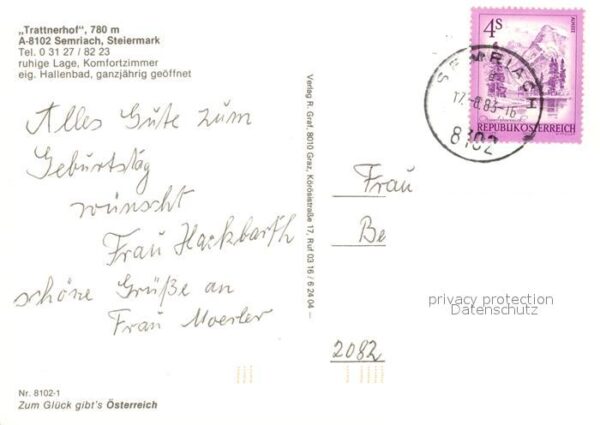 „Trattnerhof“, 780 m
A-8102 Semriach, Steiermark
Tel. 0 31 27 / 82 23
ruhige Lage, Komfortzimmer
eig. Hallenbad, ganzjährig geöffnet
Alles Gute zum
Geburtstag
wünscht
Frau Hackbarth
schöne Grüße an
Frau Moerler
Nr. 8102-1
Zum Glück gibt's Österreich
Verlag R. Graf, 8010 Graz, Körösistraße 17, Ruf 03 16 / 6 24 04 —
4S
REPUBLIK ÖSTERREICH
SEMRIACH
17.-8.83-16
8102
Frau
Be
privacy protection
Datenschutz
2082